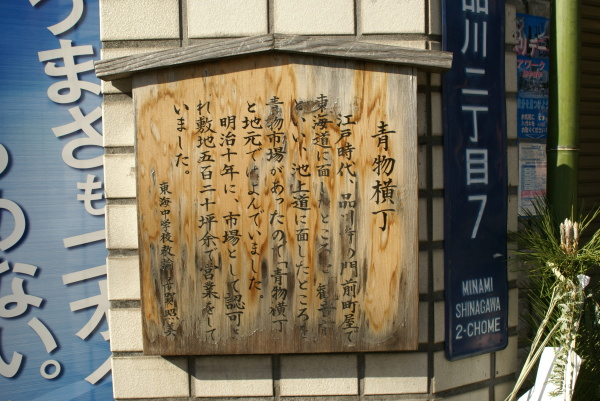 青物横丁
江戸時代、品川寺の門前町屋で
東海道に面したところを
といい、池上道に面したところを
青物市場があったので「青物横丁
と地元でよんでいました。
明治十年に、市場として認可
れ敷地五百二十坪余で営業をして
いました。
東海中学校教
品川二丁目7
MINAMI
SHINAGAWA
2-CHOME
うまさも
のない。